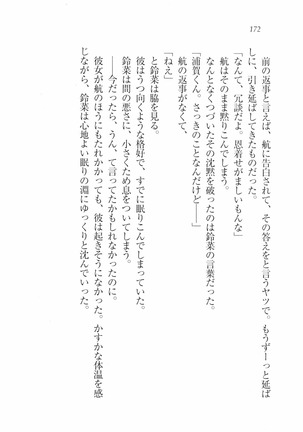 172
前の返事と言えば、航に告白されて、その答えをと言うヤツで。もうずーっと延ば
しに、引き延ばしてきたものだった。
「なんて、冗談だよ。恩着せがましいもんな」
航はそのまま黙りこんでしまう。
なんとなくつづいたその沈黙を破ったのは鈴菜の言葉だった。
「浦賀くん。さっきのことなんだけど――」
航の返事がなくて、
「ねえ」
と鈴菜は脇を見る。
彼はうつ向くような格好で、すでに眠りこんでしまっていた。
鈴菜は間の悪さに、小さくため息をついてしまう。
――今だったら、うん、て言ってたかもしれなかった。
彼女が航のほうにもたれかかっても、彼は起きそうになかった。かすかな体温を感
じながら、鈴菜は心地よい眠りの淵にゆっくりと沈んでいった。